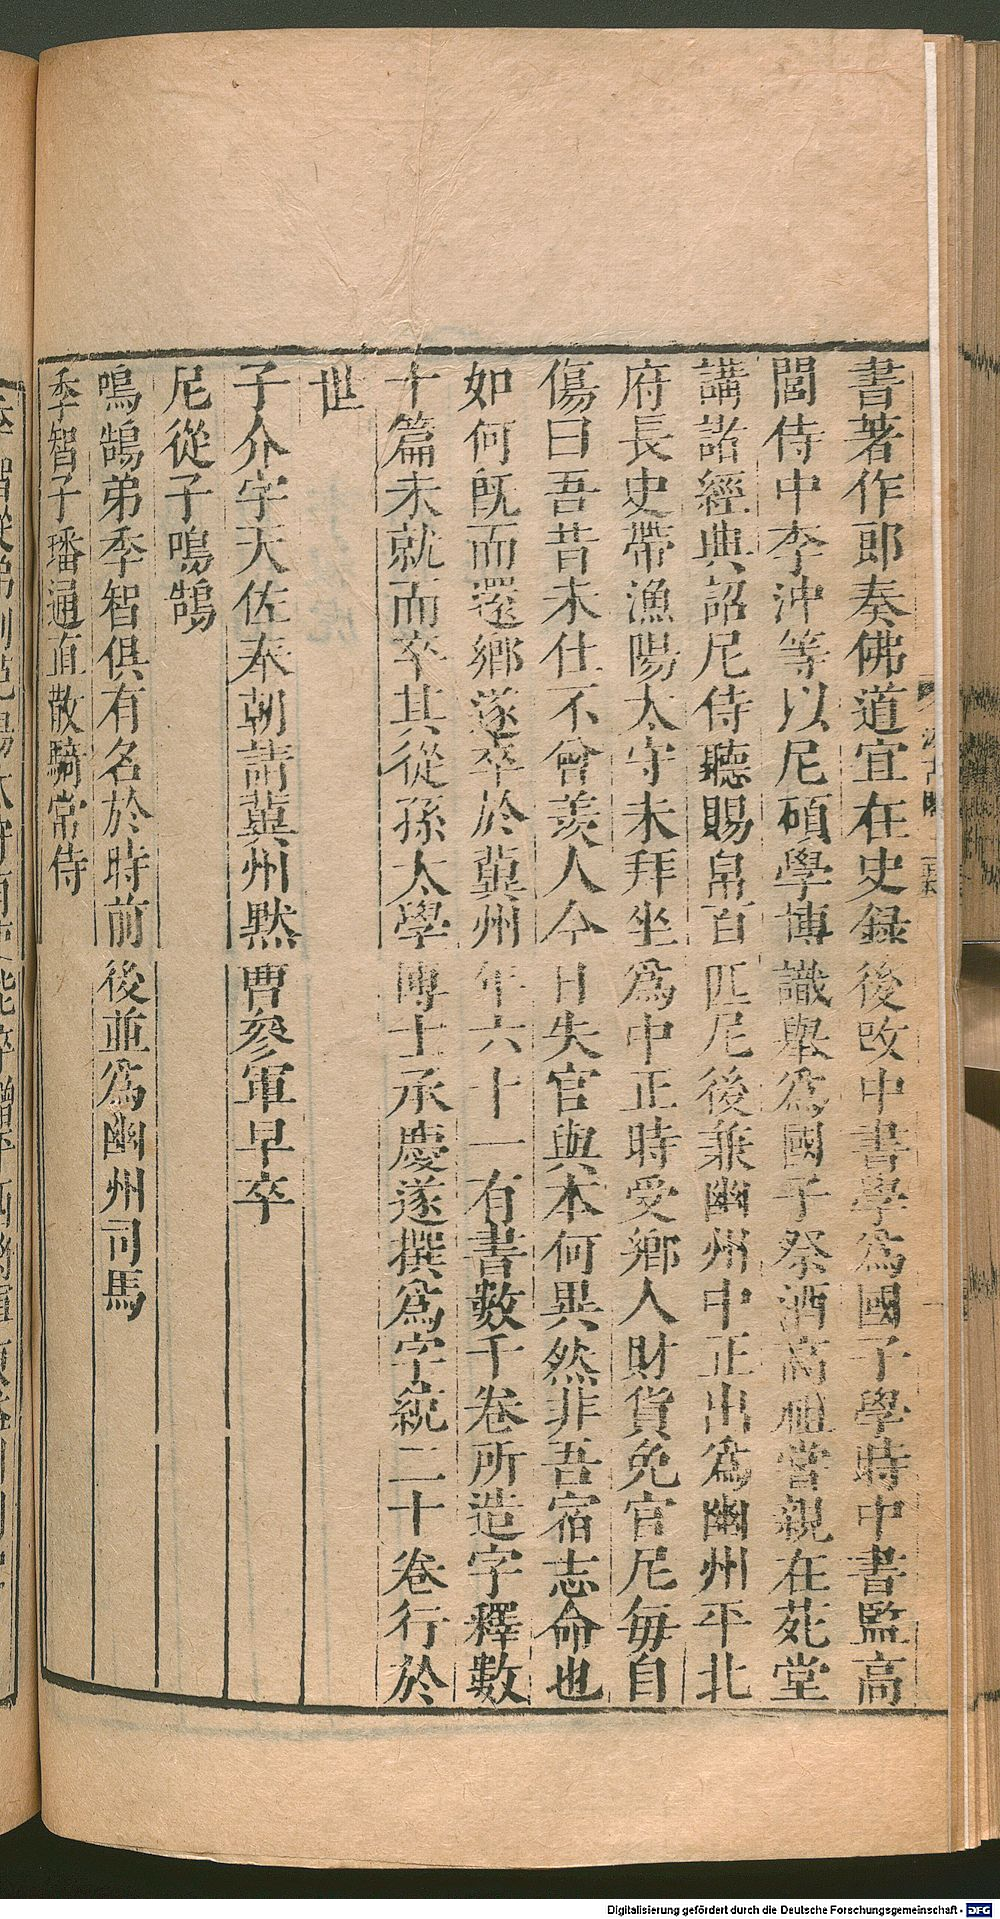 書著作郎奏佛道宜在史録後改中書學爲國子學時中書監高
閭侍中李沖等以尼碩學博識舉爲國子祭酒高祖嘗親在苑堂
講諸經典詔尼侍聽賜帛百匹尼後兼幽州中正出爲幽州平北
府長史帶漁陽太守未拜坐爲中正時受鄉人財貨免官尼每自
傷曰吾昔未仕不曾羨人今日失官與本何異然非吾宿志命也
如何既而還鄉遂卒於冀州年六十一有書數千卷所造字釋數
十篇未就而卒其從孫太學博士承慶遂撰爲字統二十卷行於
世
子介字天佐奉朝請冀州默曹參軍早卒
尼從子鳴鵠
鳴鵠弟季智俱有名於時前後並爲幽州司馬
季智子璠通直散騎常侍
Digitalisierung gefördert durch die Deutsche Forschungsgemeinschaft - DFG